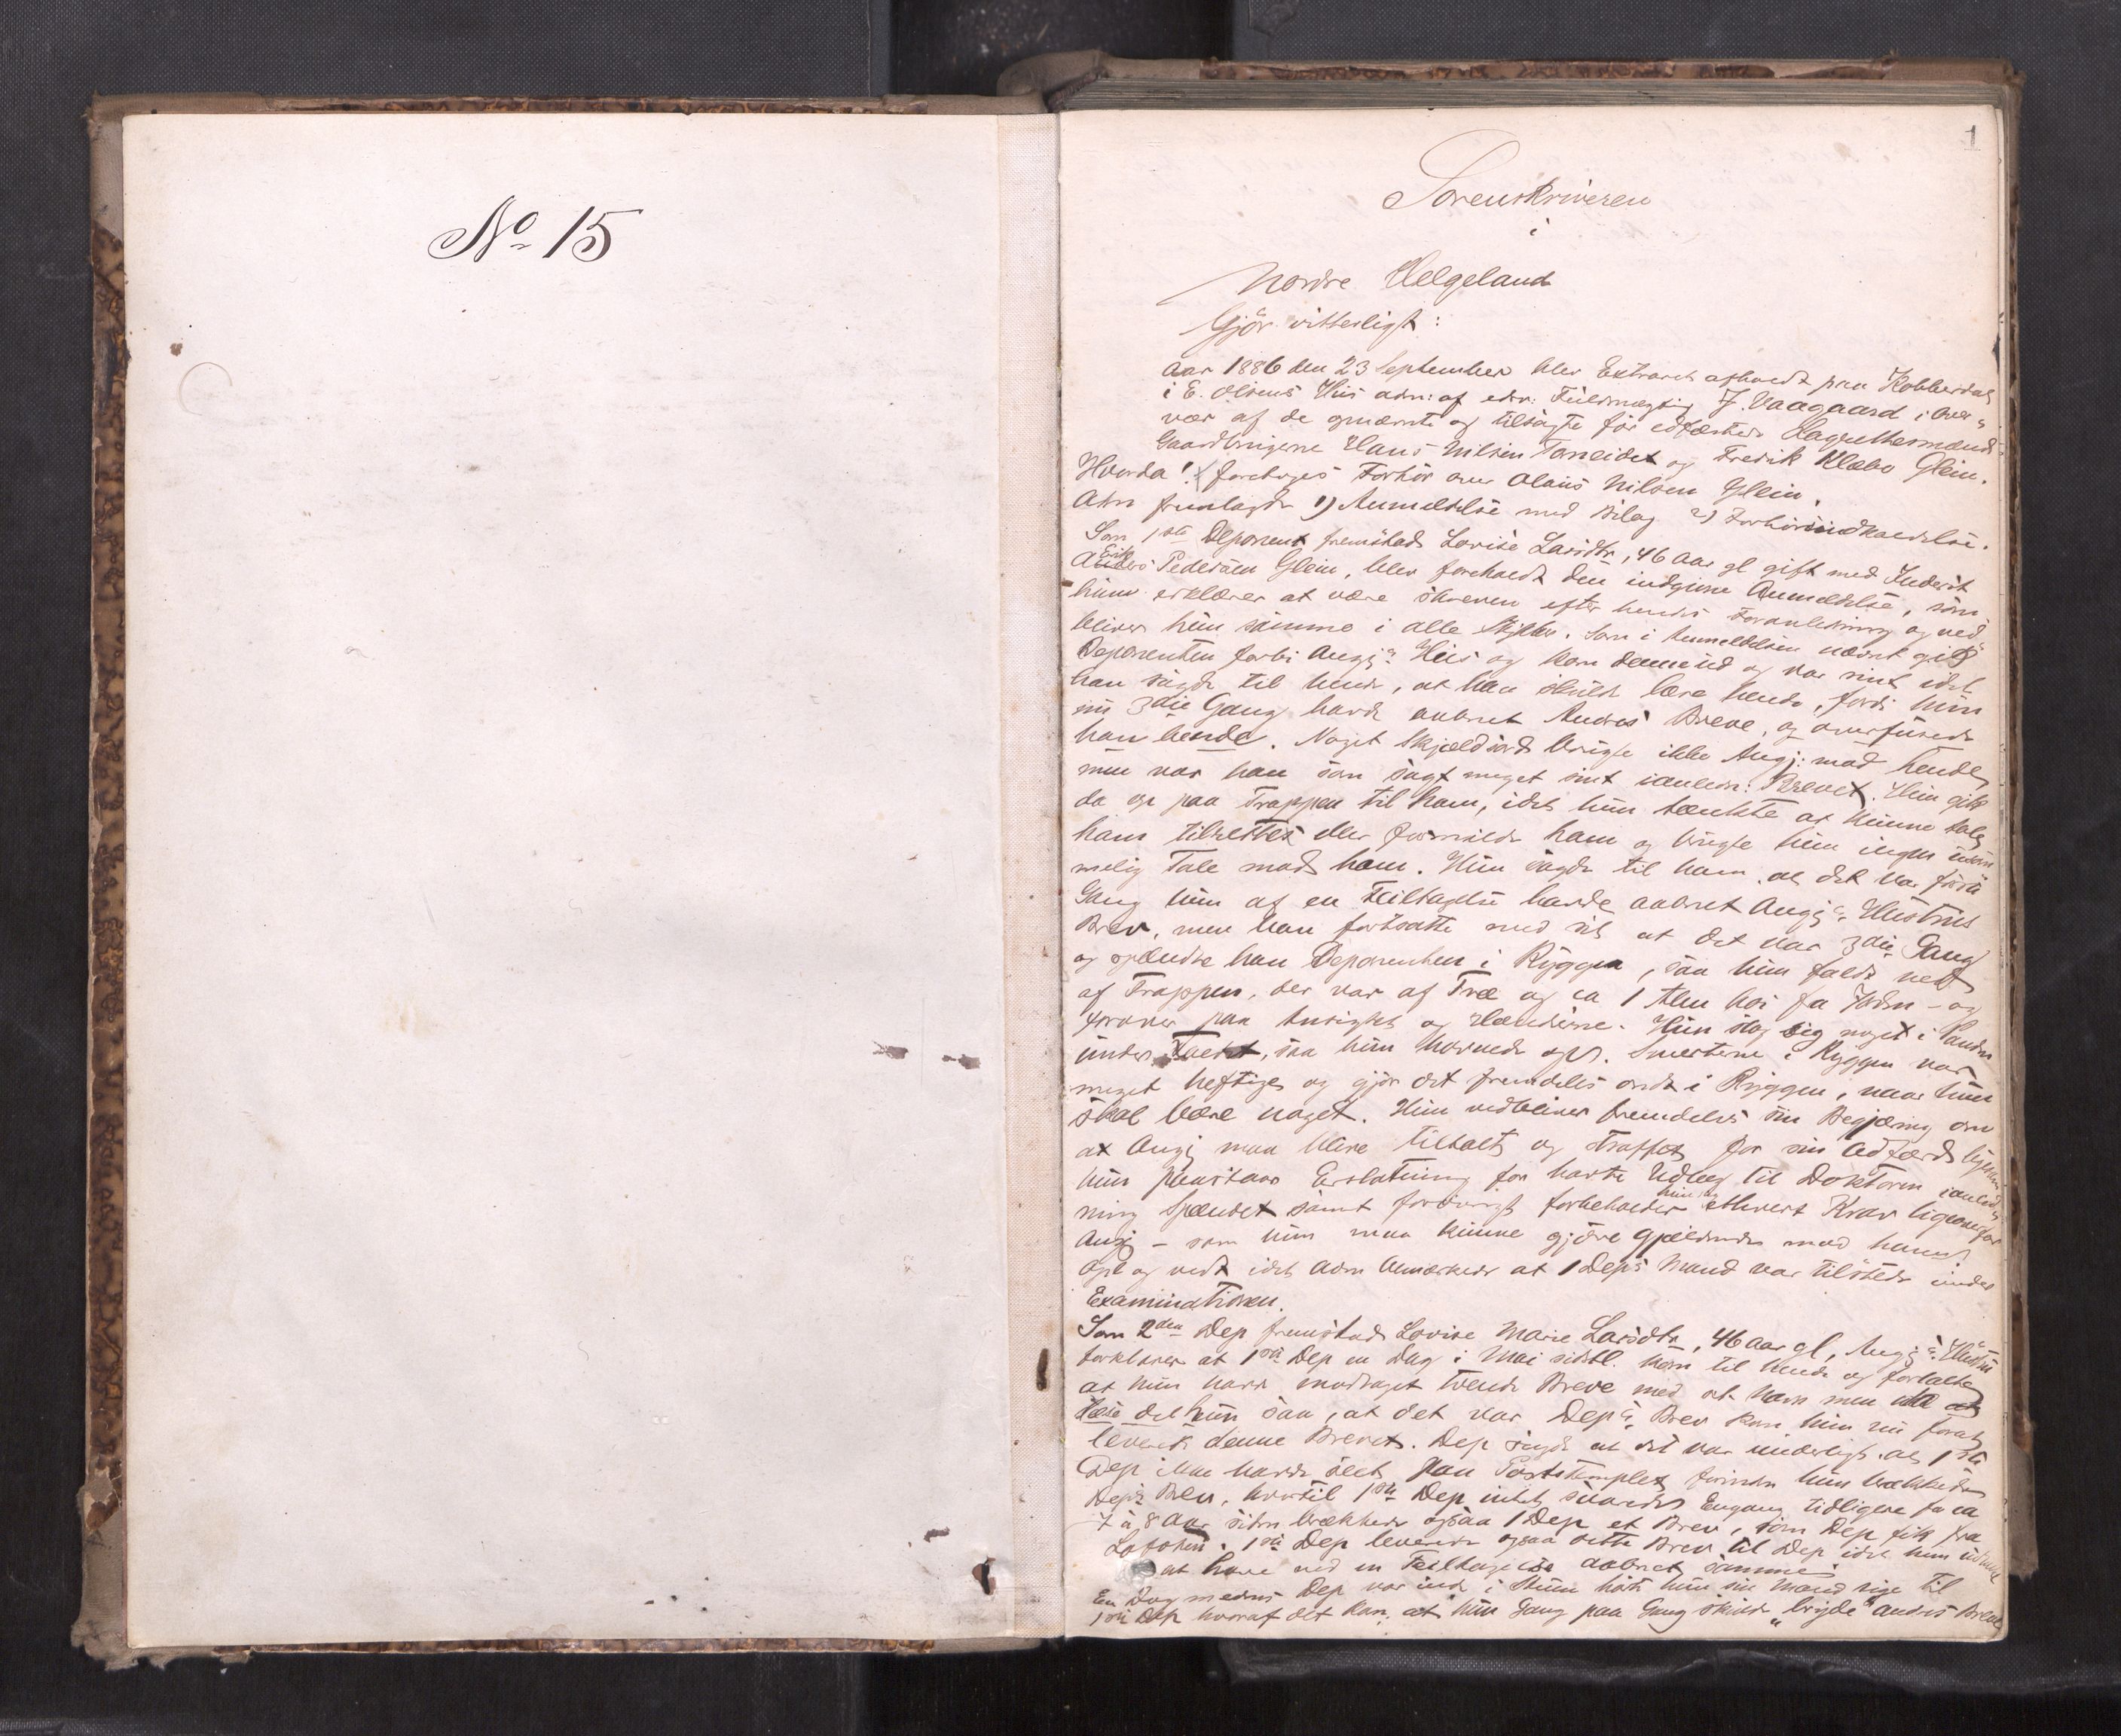 No 15
1
Sorenskriveren
i
Nordre Helgeland
Gjør vitterligt:
Aar 1886 den 23 September blev Extraret afholdt paa Kobberdal
i E. Olsens Hus adm: af edsv: Fuldmægtig J. Vaagaard i Over-
vær af de opnævnte og tilsagte før edfæstede Lagrettesmænd
Gaardbrugerne Hans Nilsen Toneidet og Fredrik Klæbo Glein.
Hvorda! foretoges Forhør over Olaus Nilsen Glein.
Adm fremlagde 1) Anmeldelse med Bilag 2) Forhørsindkaldelse.
Som 1ste Deponent fremstod Lovise Larsdtr, 46 Aar gl gift med Inderst
Erik
Anders Pedersen Glein, blev foreholdt den indgivne Anmeldelse, som
hun erklærer at være skreven efter hendes Foranledning og ved
bliver hun samme i alle Stykker. Som i Anmeldelsen nævnt gik
Deponenten forbi Angj:s Hus og kom denne ud og var sint idet
han sagde til hende, at han skulde lære hende, fordi hun
nu 3die Gang havde aabnet Andres Breve, og overfusede
han hende. Noget Skjældsord brugte ikke Angj: mod hende
men var han som sagt meget sint ianledn: Brevet. Hun gik
da op paa Trappen til ham, idet hun tænkte at kunne tale
ham tilrette eller formilde ham og brugte hun ingen usøm
melig Tale mod ham. Hun sagde til ham at det var første
Gang hun af en Feiltagelse havde aabnet Angj:s Hustrus
Brev, men han fortsatte med sit at det var 3die Gang
og spændte han Deponenten i Ryggen, saa hun faldt ned
af Trappen, der var af Træ og ca 1 Alen høi fra Jorden - og
forover paa Ansigtet og Hænderne. Hun slog sig noget i Panden
under Faldet, saa hun hovnede op. Smerterne i Ryggen var
meget heftige og gjør det fremdeles ondt i Ryggen, naar hun
skal bære noget. Hun vedbliver fremdeles sin Begjæring om
at Angj maa blive tiltalt og straffet for sin Adfærd ligesom
hun paastaar Erstatning for havte Udlæg til Doktoren ianled
hun sig
ning Spændet samt forøvrigt forbeholder ethvert Krav ligeoverfor
Angj - som hun maa kunne gjøre gjældende mod ham
Opl og vedt idet Adm bemærkede at 1 Dep:s Mand var tilstede under
Examinationen.
Som 2den Dep fremstod Lovise Marie Larsdtr, 46 Aar gl, Angj:s Hustru
forklarer at 1ste Dep en Dag i Mai sidstl. kom til hende og fortalte
at hun havde modtaget tvende Breve med sit Navn men
læse det hun saa, at det var Dep:s Brev kom hun nu forat
levere denne Brevet. Dep sagde at det var underligt at 1ste
Dep ikke havde seet paa Poststemplet forinden hun brækkede
Dep:s Brev, hvortil 1ste Dep intet svarede. Engang tidligere for ca
7 à 8 Aar siden brækkede ogsaa 1 Dep et Brev, som Dep fik fra
Lofoten. 1ste Dep leverede ogsaa dette Brev til Dep idet hun
at have ved en Feiltagelse aabnet samme
En Dag medens Dep var inde i Stuen hørte hun sin Mand sige til
1ste Dep hvoraf det kan, at hun Gang paa Gang skulde „bryde" andres Breve